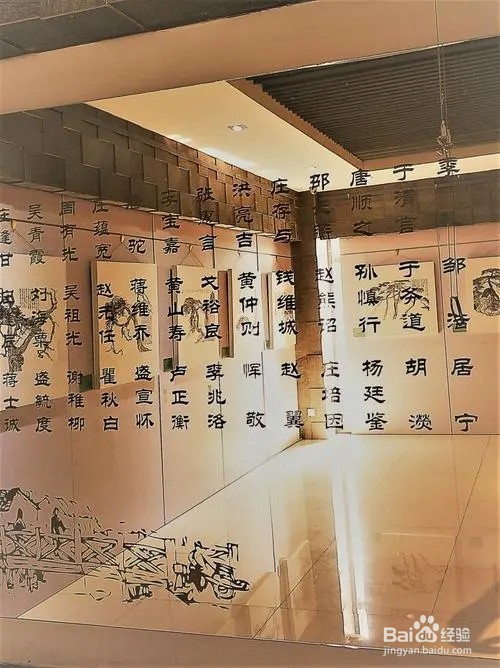 邹浩 居宁
胡濙
唐顺之 孙慎行 杨廷鉴
邵 赵熊诏 庄培因
庄存与 钱维城 赵翼
洪亮吉 黄仲则 恽敬
张惠言 戈裕良 李兆洛
李宝嘉 黄山寿 卢正衡
驼 蒋维乔 盛宣怀
庄蕴宽 赵元任 瞿秋白
周有光 吴祖光 谢稚柳
吴青霞 刘海粟 盛毓度
蒋士诚
Baidu经验
jingyan.baidu.com